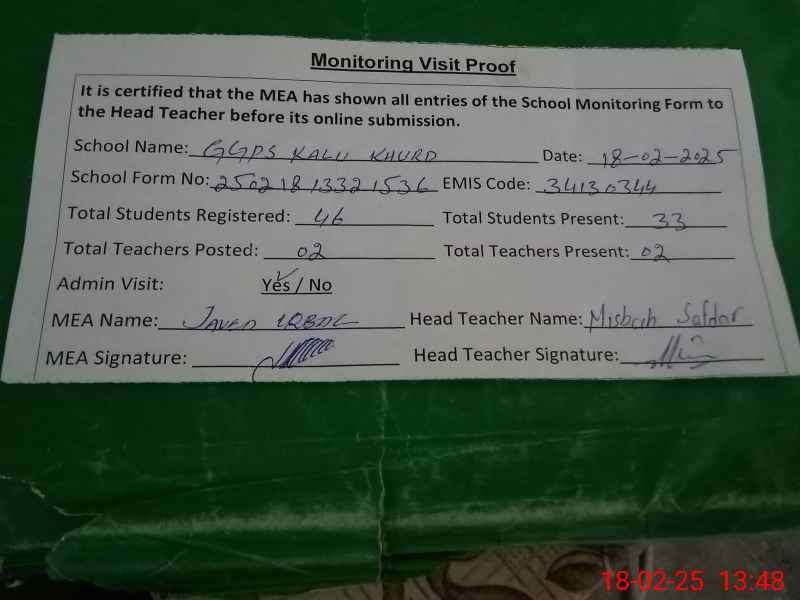 Monitoring Visit Proof
It is certified that the MEA has shown all entries of the School Monitoring Form to
the Head Teacher before its online submission.
School Name: GGPS KALU KHURD Date: 18-02-2025
School Form No: 2502181332 1536 EMIS Code: 34130344
Total Students Registered: 46 Total Students Present: 33
Total Teachers Posted: 02 Total Teachers Present: 02
Admin Visit: Yes / No
MEA Name: JAVED IQBAL Head Teacher Name: Misbah Safdar
MEA Signature: Head Teacher Signature:
18-02-25 13:48